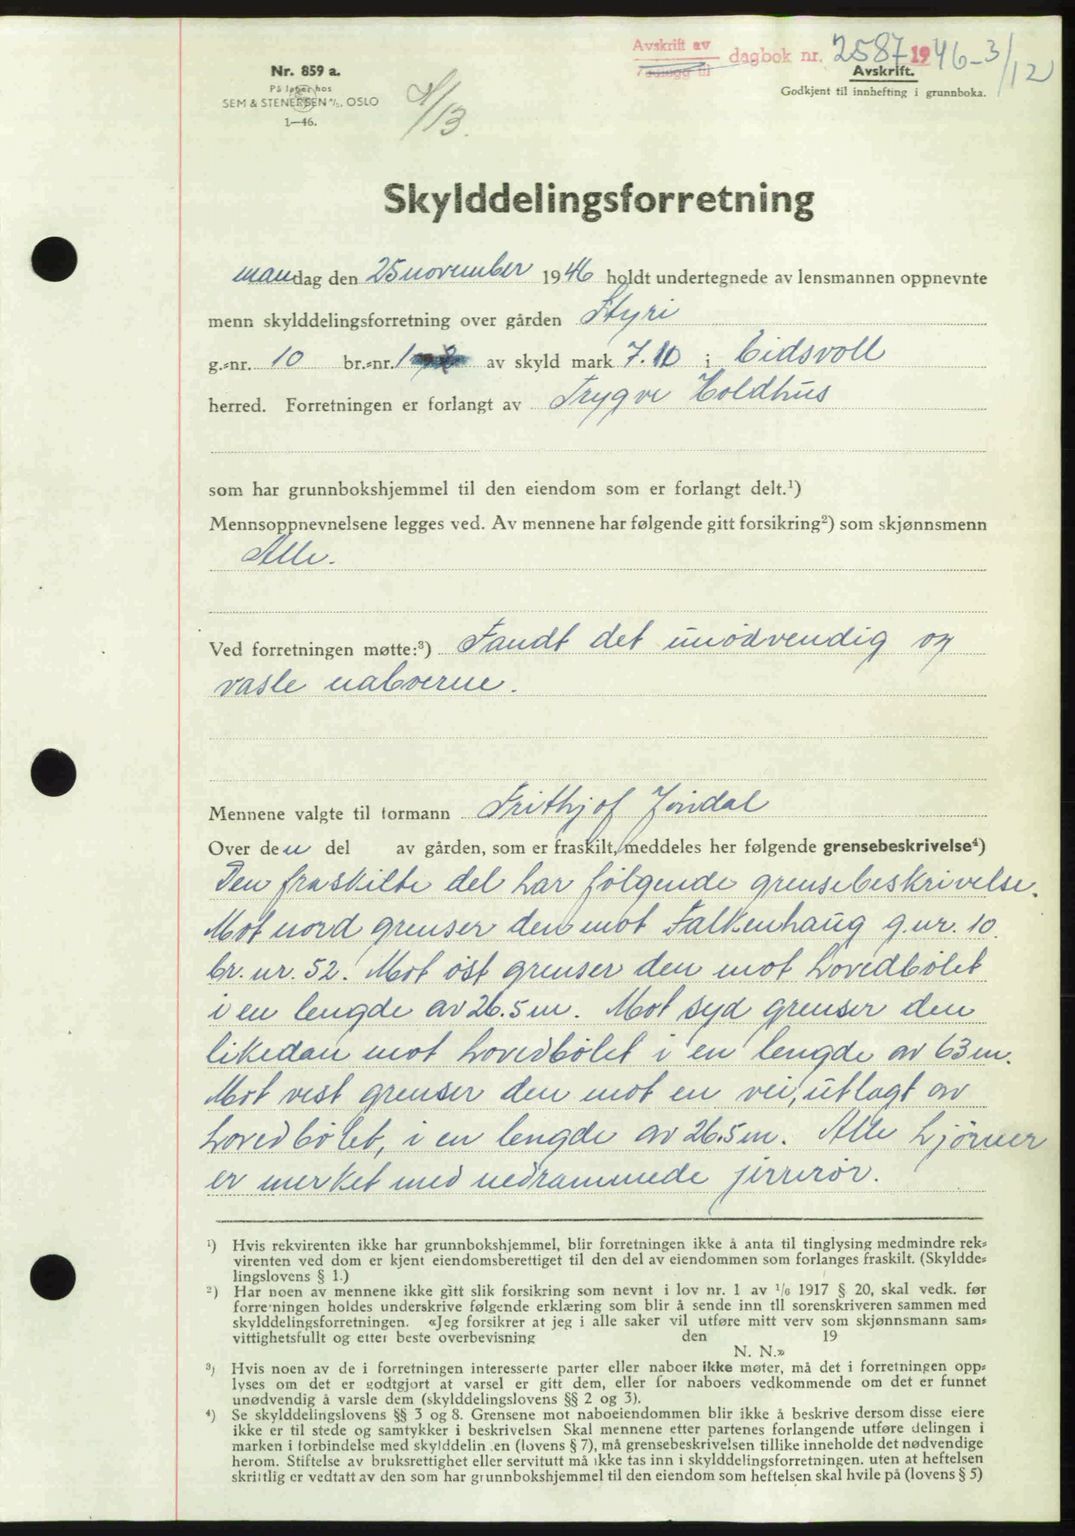 Avskrift av
dagbok nr. 2587 1946-3/12
Nr. 859 a.
På lager hos
SEM & STENERSEN A/S, OSLO
1—46.
Avskrift.
Godkjent til innhefting i grunnboka.
Skylddelingsforretning
mandag den 25 november 1946 holdt undertegnede av lensmannen oppnevnte
menn skylddelingsforretning over gården Styri
g.-nr. 10 br.-nr. 1 av skyld mark 7.10 i Eidsvoll
herred. Forretningen er forlangt av Trygve Holdhus
som har grunnbokshjemmel til den eiendom som er forlangt delt.¹)
Mennsoppnevnelsene legges ved. Av mennene har følgende gitt forsikring²) som skjønnsmenn
Alle.
Ved forretningen møtte:³) Fandt det unødvendig og
vasle naboerne.
Mennene valgte til formann Frithjof Jondal
Over den del av gården, som er fraskilt, meddeles her følgende grensebeskrivelse⁴)
Den fraskilte del har følgende grensebeskrivelse.
Mot nord grenser den mot Falkenhaug g.nr. 10.
br. nr. 52. Mot øst grenser den mot hovedbølet
i en lengde av 26.5 m. Mot syd grenser den
likedan mot hovedbølet i en lengde av 63 m.
Mot vest grenser den mot en vei, utlagt av
hovedbølet, i en lengde av 26.5 m. Alle hjørner
er merket med nedrammede jernrør.
¹) Hvis rekvirenten ikke har grunnbokshjemmel, blir forretningen ikke å anta til tinglysing medmindre rek-
virenten ved dom er kjent eiendomsberettiget til den del av eiendommen som forlanges fraskilt. (Skyldde-
lingslovens § 1.)
²) Har noen av mennene ikke gitt slik forsikring som nevnt i lov nr. 1 av ¹/₆ 1917 § 20, skal vedk. før
forretningen holdes underskrive følgende erklæring som blir å sende inn til sorenskriveren sammen med
skylddelingsforretningen. «Jeg forsikrer at jeg i alle saker vil utføre mitt verv som skjønnsmann sam-
vittighetsfullt og etter beste overbevisning den 19
N. N.»
³) Hvis noen av de i forretningen interesserte parter eller naboer ikke møter, må det i forretningen opp-
lyses om det er godtgjort at varsel er gitt dem, eller for naboers vedkommende om det er funnet
unødvendig å varsle dem (skylddelingslovens §§ 2 og 3).
⁴) Se skylddelingslovens §§ 3 og 8. Grensene mot naboeiendommen blir ikke å beskrive dersom disse eiere
ikke er til stede og samtykker i beskrivelsen Skal mennene etter partenes forlangende utføre delingen i
marken i forbindelse med skylddelingen (lovens § 7), må grensebeskrivelsen tillike inneholde det nødvendige
herom. Stiftelse av bruksrettighet eller servitutt må ikke tas inn i skylddelingsforretningen, uten at heftelsen
skriftlig er vedtatt av den som har grunnbokshjemmel til den eiendom som heftelsen skal hvile på (lovens § 5)